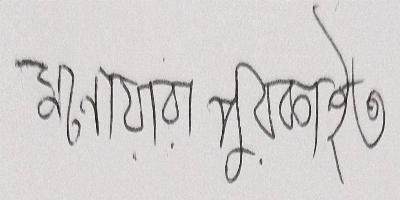 মনোয়ারা পুরকাইত